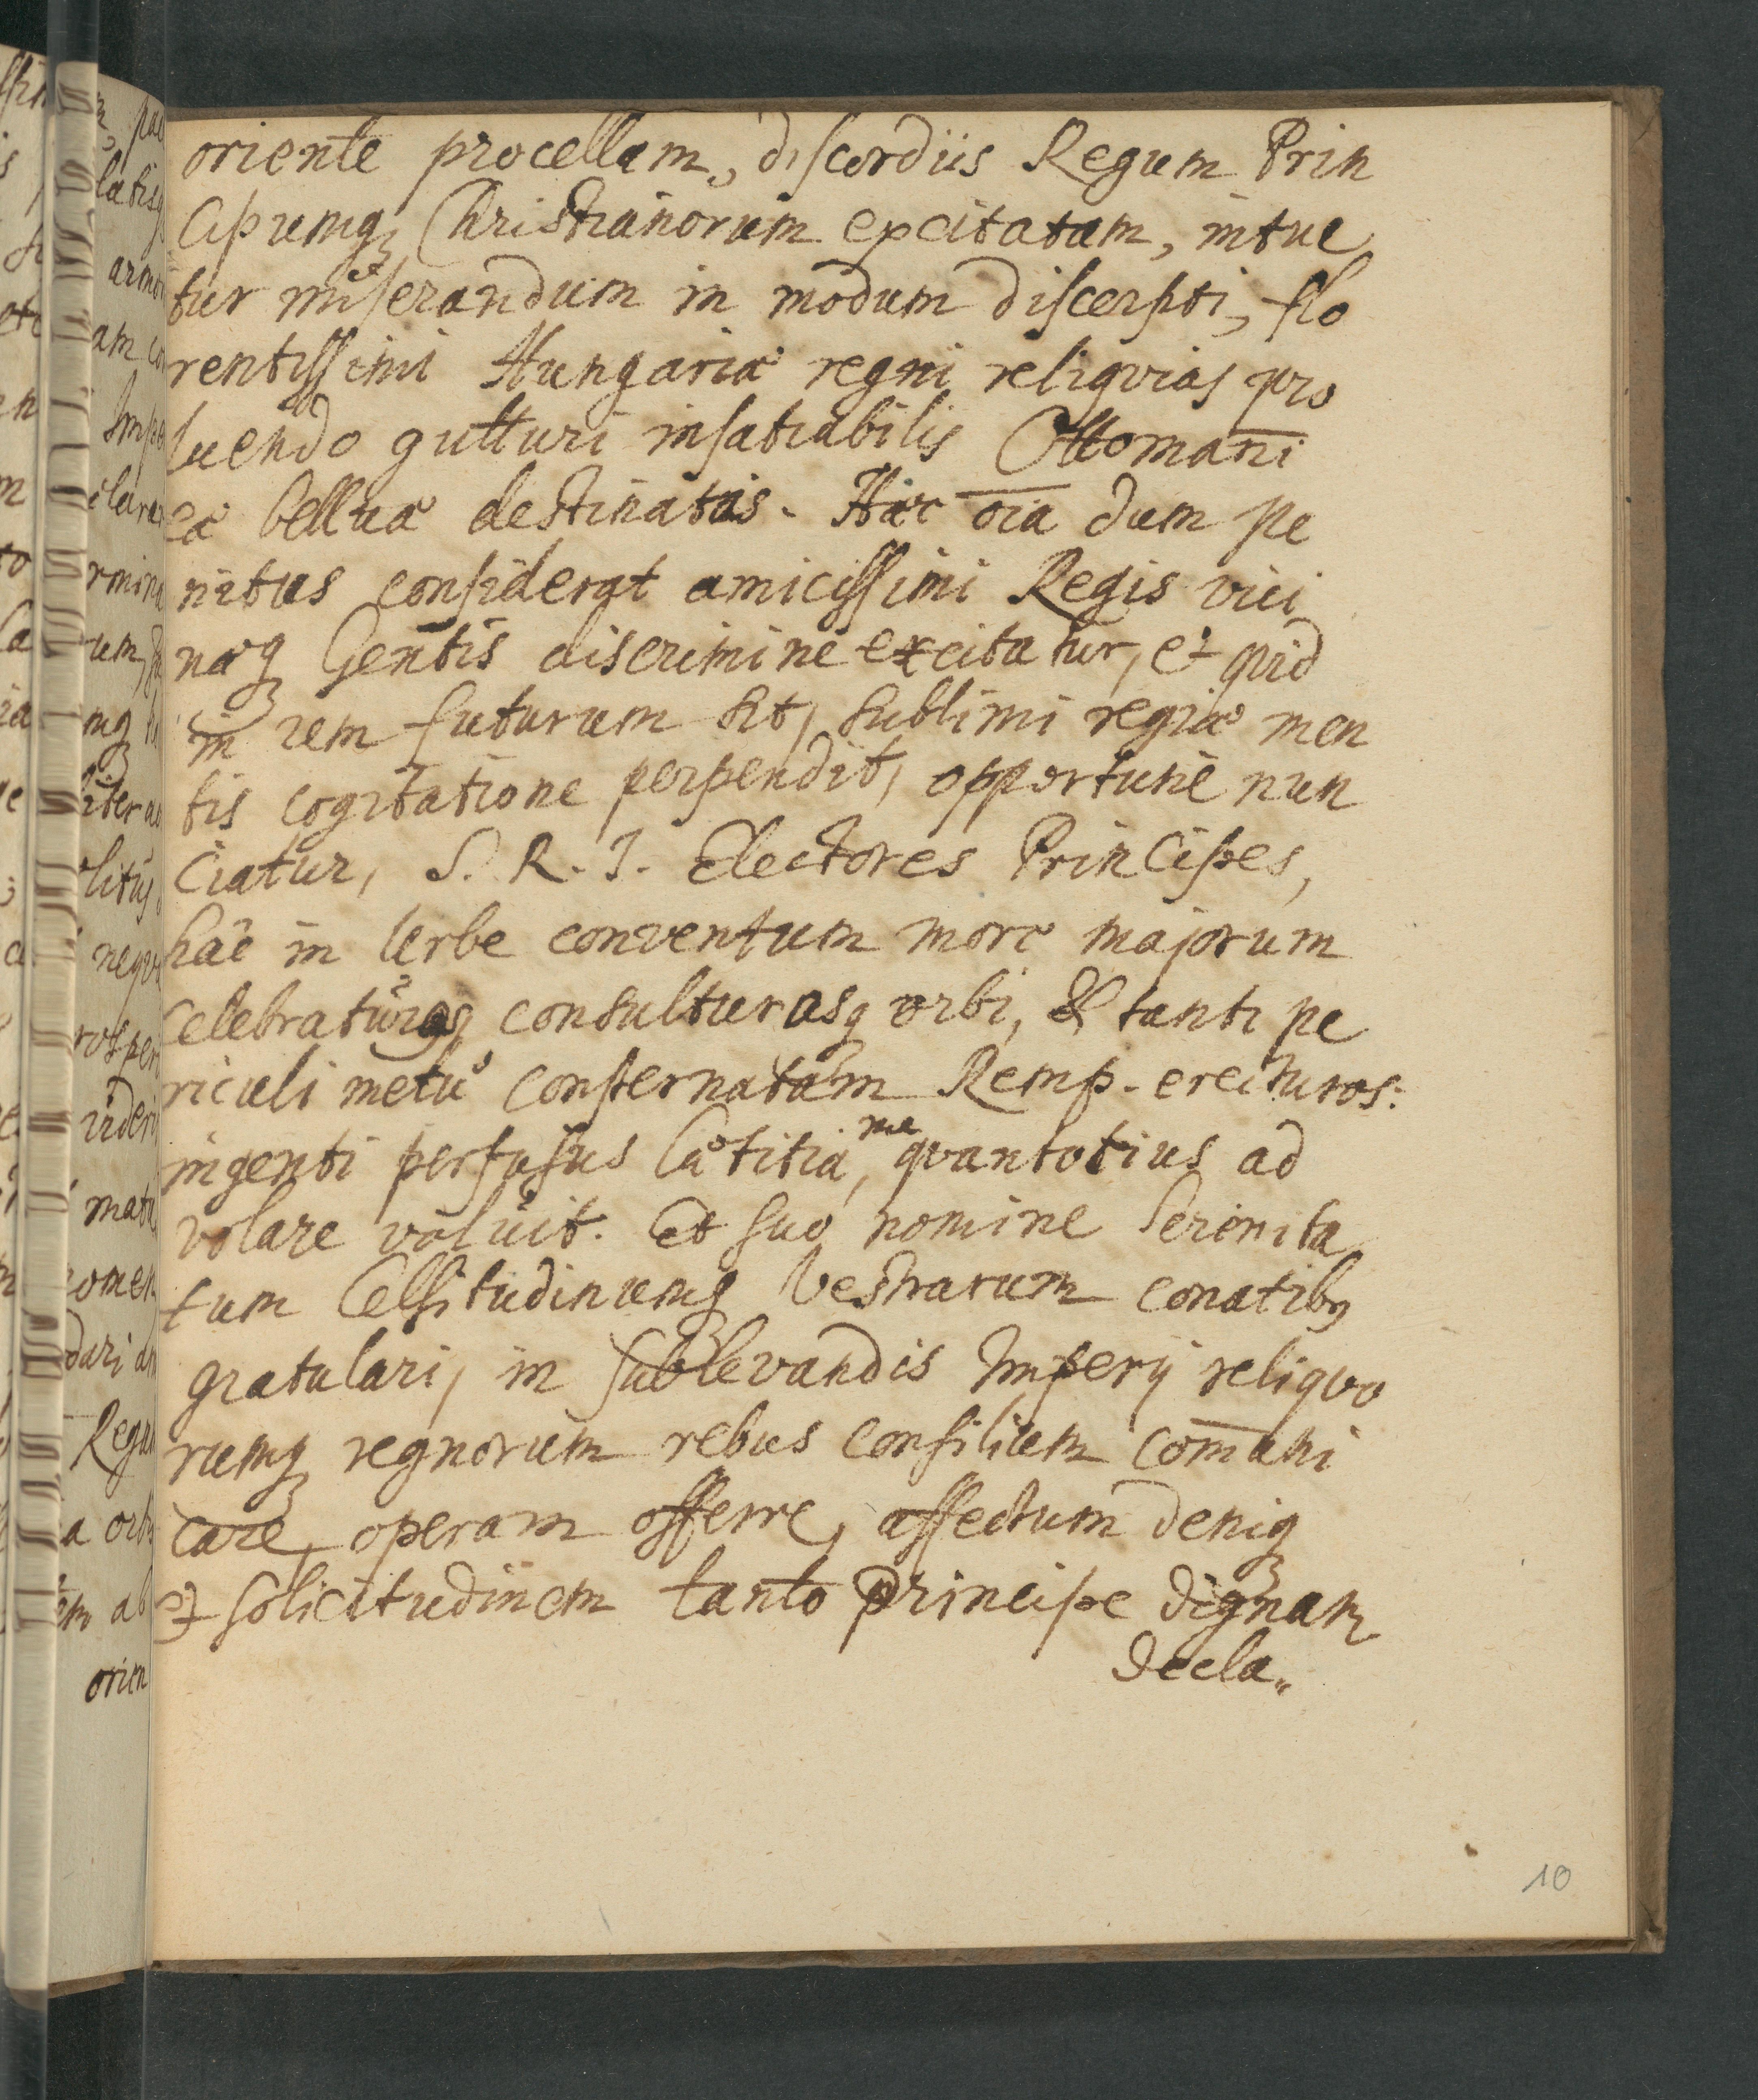 oriente procellam, discordiis Regum Prin
cipumq; Christianorum excitatam, intue
tur miserandum in modum discerpti, flo
rentissimi Hungariæ regni reliqvias pro
luendo gutturi insatiabilis Ottomani
cæ belluæ destinatas. Hæc oīa dum pe
nitus considerat amicissimi Regis vici
næq; Gentis discrimine excitatur, et qvid
in rem futurum sit, sublimi regiæ men
tis cogitatione perpendit, opportune nun
ciatur, S. R. I. Electores Principes,
hâc in Urbe conventum more majorum
celebraturos, consulturosq; orbi, & tanti pe
riculi metu consternatam Remp. erecturos:
ingenti perfusus lætitiâ, me qvantotius ad
volare voluit. Et suo nomine Serenita
tum Celsitudinumq; Vestrarum conatib9
gratulari, in sublevandis Imperij reliqvo
rumq; regnorum rebus consilium com̄uni
care, operam offerre, affectum deniq;
et solicitudinem tanto principe dignam
decla„
10
pac
lætisq;
armor
am co
Imp
clara
rmina
um,
mq;
liter
olitus
neqv
rosper
videri
matu
nomen
dari
Regum
a orb
em ab
orien